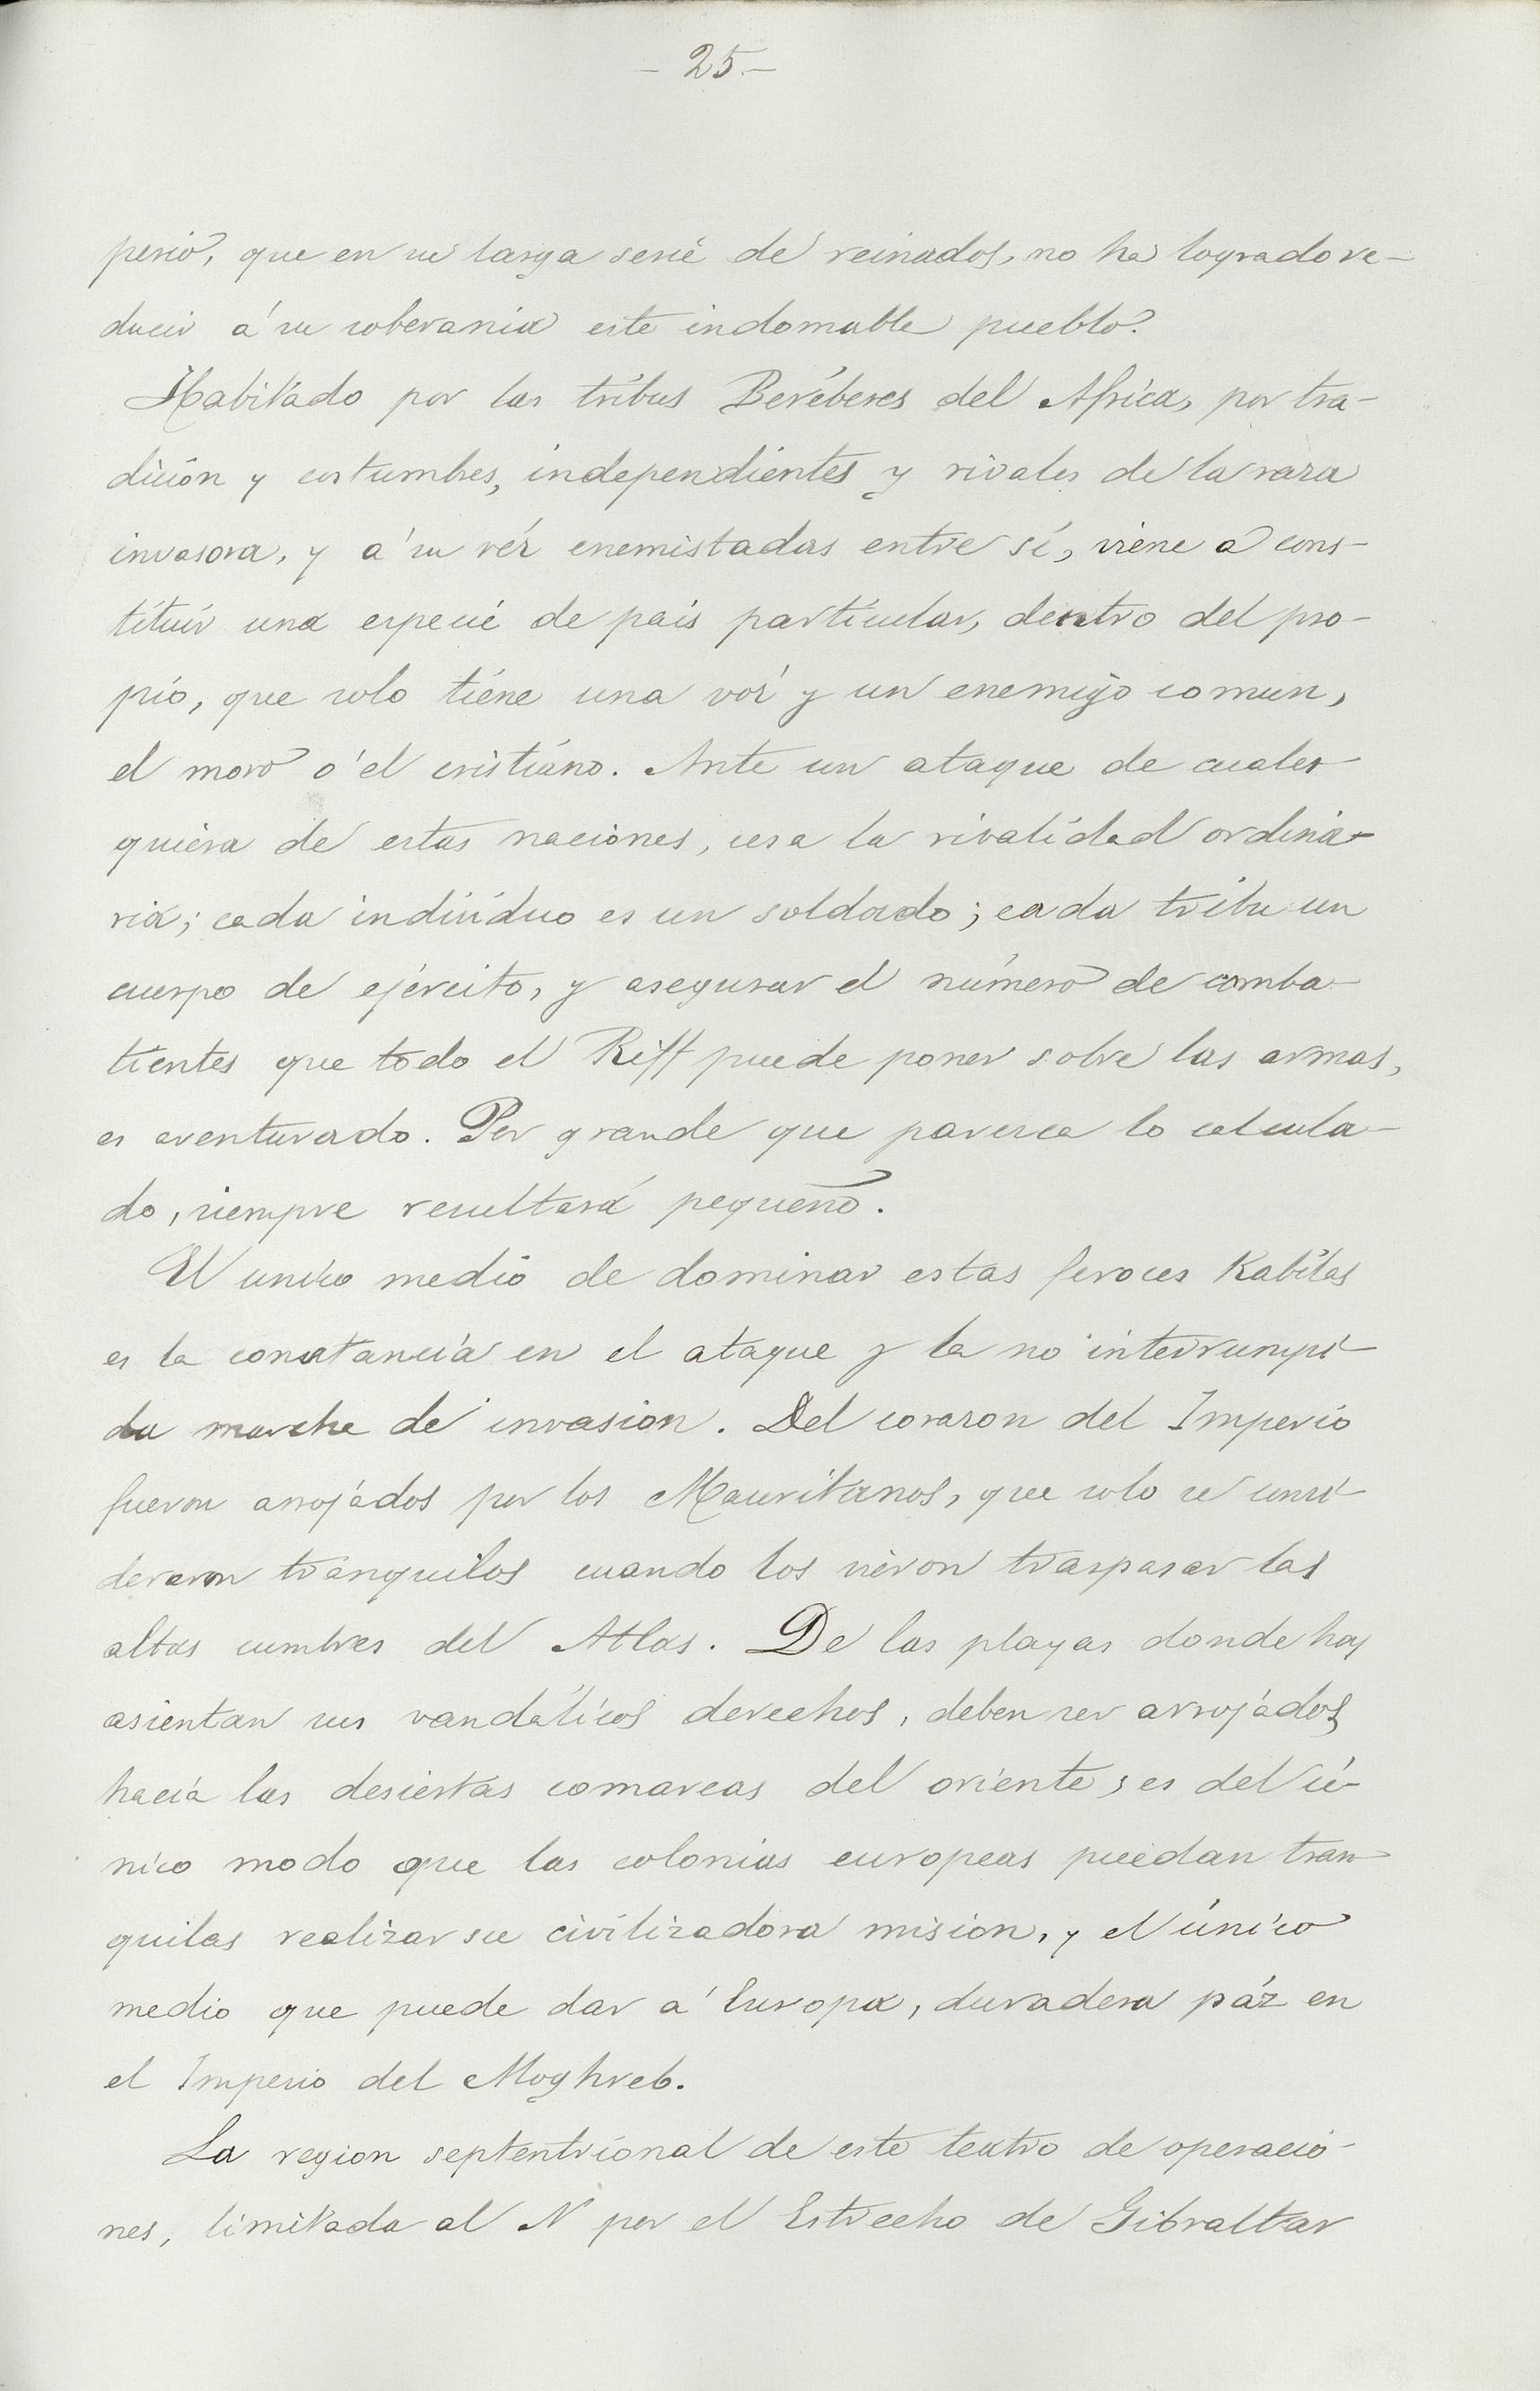 - 25.-
perio, que en su larga serie de reinados, no ha logrado re-
ducir á su soberania este indomable pueblo.
Habitado por las tribus Beréberes del Africa, por tra-
dición y costumbres, independientes y rivales de la raza
invasora, y á su véz enemistadas entre sí, viene á cons-
tituir una especie de pais particular, dentro del pro-
pio, que solo tiene una voz y un enemigo comun,
el moro ó el cristiano. Ante un ataque de cuales-
quiera de estas naciones, cesa la rivalidad ordina-
ria; cada individuo es un soldado; cada tribu un
cuerpo de ejército, y asegurar el número de comba-
tientes que todo el Riff puede poner sobre las armas,
es aventurado. Por grande que parezca lo calcula-
do, siempre resultará pequeño.
El unico medio de dominar estas feroces Kabilas
es la constancia en el ataque y la no interrumpi-
da marcha de invasion. Del corazon del Imperio
fueron arrojados por los Mauritanos, que solo se consi-
deraron tranquilos cuando los vieron traspasar las
altas cumbres del Atlas. De las playas donde hoy
asientan sus vandálicos derechos, deben ser arrojados
hacia las desiertas comarcas del oriente; es del ú-
nico modo que las colonias europeas puedan tran-
quilas realizar su civilizadora mision, y el único
medio que puede dar á Europa, duradera páz en
el Imperio del Moghreb.
La region septentrional de este teatro de operacio-
nes, limitada al N por el Estrecho de Gibraltar